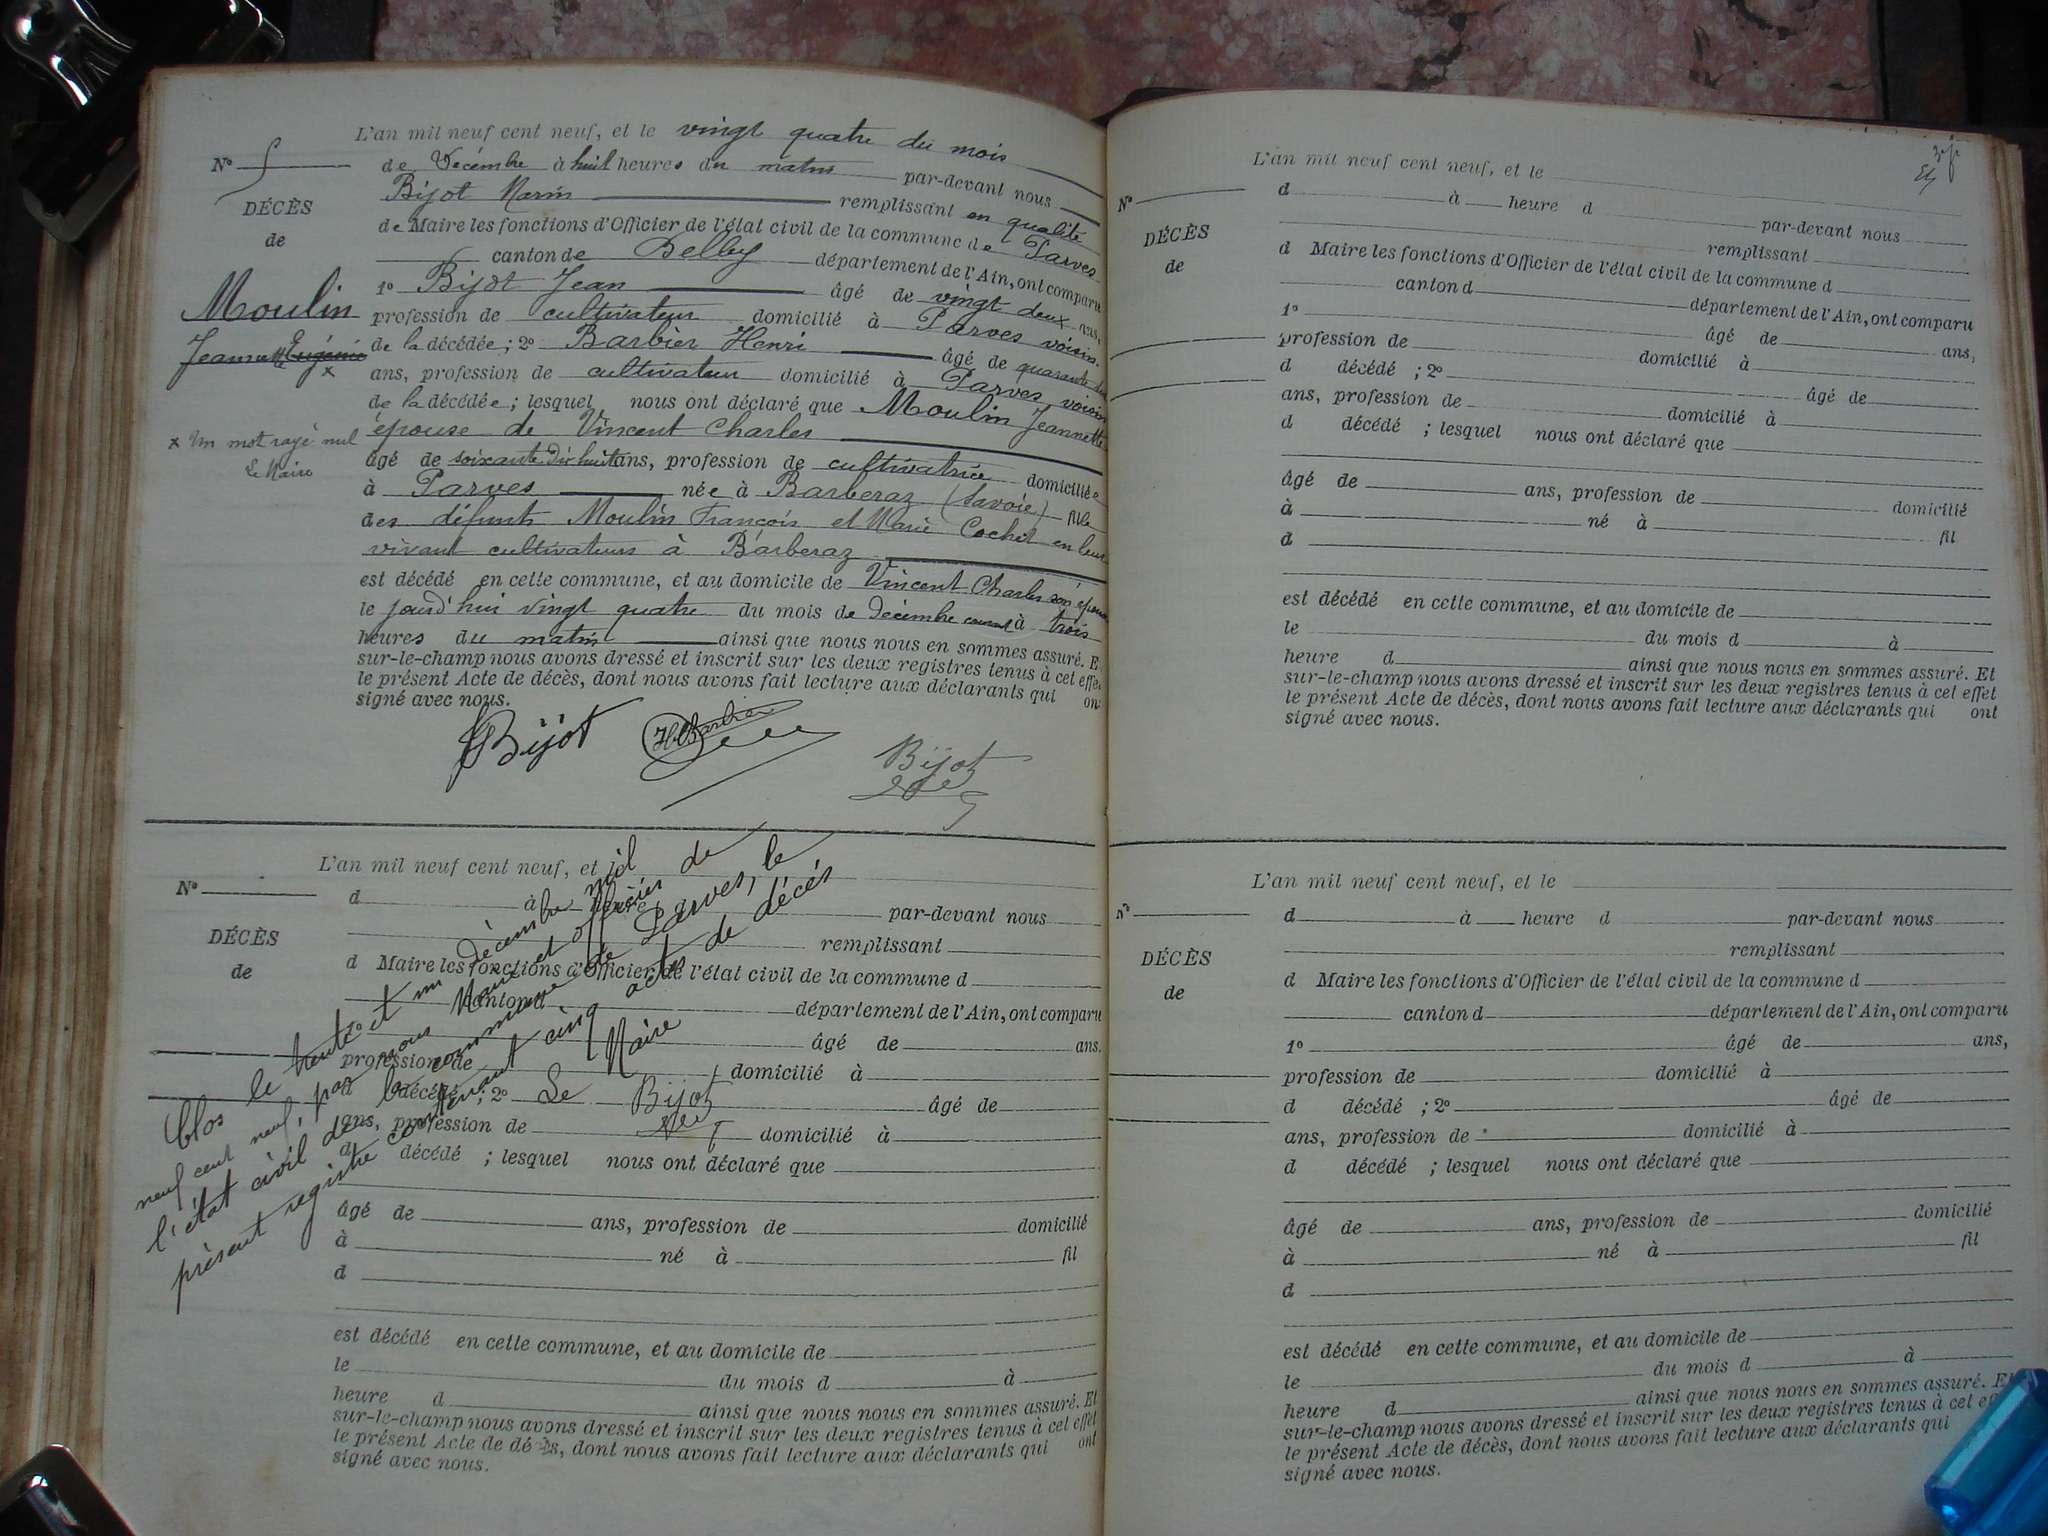 L'an mil neuf cent neuf, et le vingt quatre du mois
N° 5
de Décembre à huit heures du matin par-devant nous
Bijot Marin remplissant en qualité
DÉCÈS
de Maire les fonctions d'Officier de l'état civil de la commune de Parves
de
canton de Belley département de l'Ain, ont comparu
1° Bijot Jean âgé de vingt deux ans,
Moulin
profession de cultivateur domicilié à Parves voisin
Jeannette Eugénie ×
de la décédée ; 2° Barbier Henri âgé de quarante
ans, profession de cultivateur domicilié à Parves voisin
de la décédée ; lesquel nous ont déclaré que Moulin Jeannette
× Un mot rayé nul
Le Maire
épouse de Vincent Charles
âgé de soixante dix huit ans, profession de cultivatrice domiciliée
à Parves née à Barberaz (Savoie) fille
des défunts Moulin François et Marie Cochet en leur
vivant cultivateurs à Barberaz
est décédé en cette commune, et au domicile de Vincent Charles son époux
le jourd'hui vingt quatre du mois de décembre courant à trois
heures du matin ainsi que nous nous en sommes assuré. E
sur-le-champ nous avons dressé et inscrit sur les deux registres tenus à cet effe
le présent Acte de décès, dont nous avons fait lecture aux déclarants qui on
signé avec nous.
Bijot H Barbier Bijot
L'an mil neuf cent neuf, et le
N°
d à heure par-devant nous
remplissant
DÉCÈS
de
d Maire les fonctions d'Officier de l'état civil de la commune d
canton d département de l'Ain, ont comparu
1° âgé de ans.
profession de domicilié à
d décédé ; 2° âgé de
ans, profession de domicilié à
d décédé ; lesquel nous ont déclaré que
âgé de ans, profession de domicilié
à né à fil
d
est décédé en cette commune, et au domicile de
le du mois d à
heure d ainsi que nous nous en sommes assuré. Et
sur-le-champ nous avons dressé et inscrit sur les deux registres tenus à cet effet
le présent Acte de décès, dont nous avons fait lecture aux déclarants qui ont
signé avec nous.
Clos le trente et un décembre mil
neuf cent neuf, par nous Maire et officier de
l'état civil de la commune de Parves, le
présent registre contenant cinq actes de décès
Le Maire
Bijot
L'an mil neuf cent neuf, et le
N°
d à heure d par-devant nous
remplissant
DÉCÈS
de
d Maire les fonctions d'Officier de l'état civil de la commune d
canton d département de l'Ain, ont comparu
1° âgé de ans,
profession de domicilié à
d décédé ; 2° âgé de
ans, profession de domicilié à
d décédé ; lesquel nous ont déclaré que
âgé de ans, profession de domicilié
à né à fil
d
est décédé en cette commune, et au domicile de
le du mois d à
heure d ainsi que nous nous en sommes assuré. Et
sur-le-champ nous avons dressé et inscrit sur les deux registres tenus à cet effet
le présent Acte de décès, dont nous avons fait lecture aux déclarants qui ont
signé avec nous.
L'an mil neuf cent neuf, et le
N°
d à heure d par-devant nous
remplissant
DÉCÈS
de
d Maire les fonctions d'Officier de l'état civil de la commune d
canton d département de l'Ain, ont comparu
1° âgé de ans,
profession de domicilié à
d décédé ; 2° âgé de
ans, profession de domicilié à
d décédé ; lesquel nous ont déclaré que
âgé de ans, profession de domicilié
à né à fil
d
est décédé en cette commune, et au domicile de
le du mois d à
heure d ainsi que nous nous en sommes assuré. Et
sur-le-champ nous avons dressé et inscrit sur les deux registres tenus à cet
le présent Acte de décès, dont nous avons fait lecture aux déclarants qui
signé avec nous.